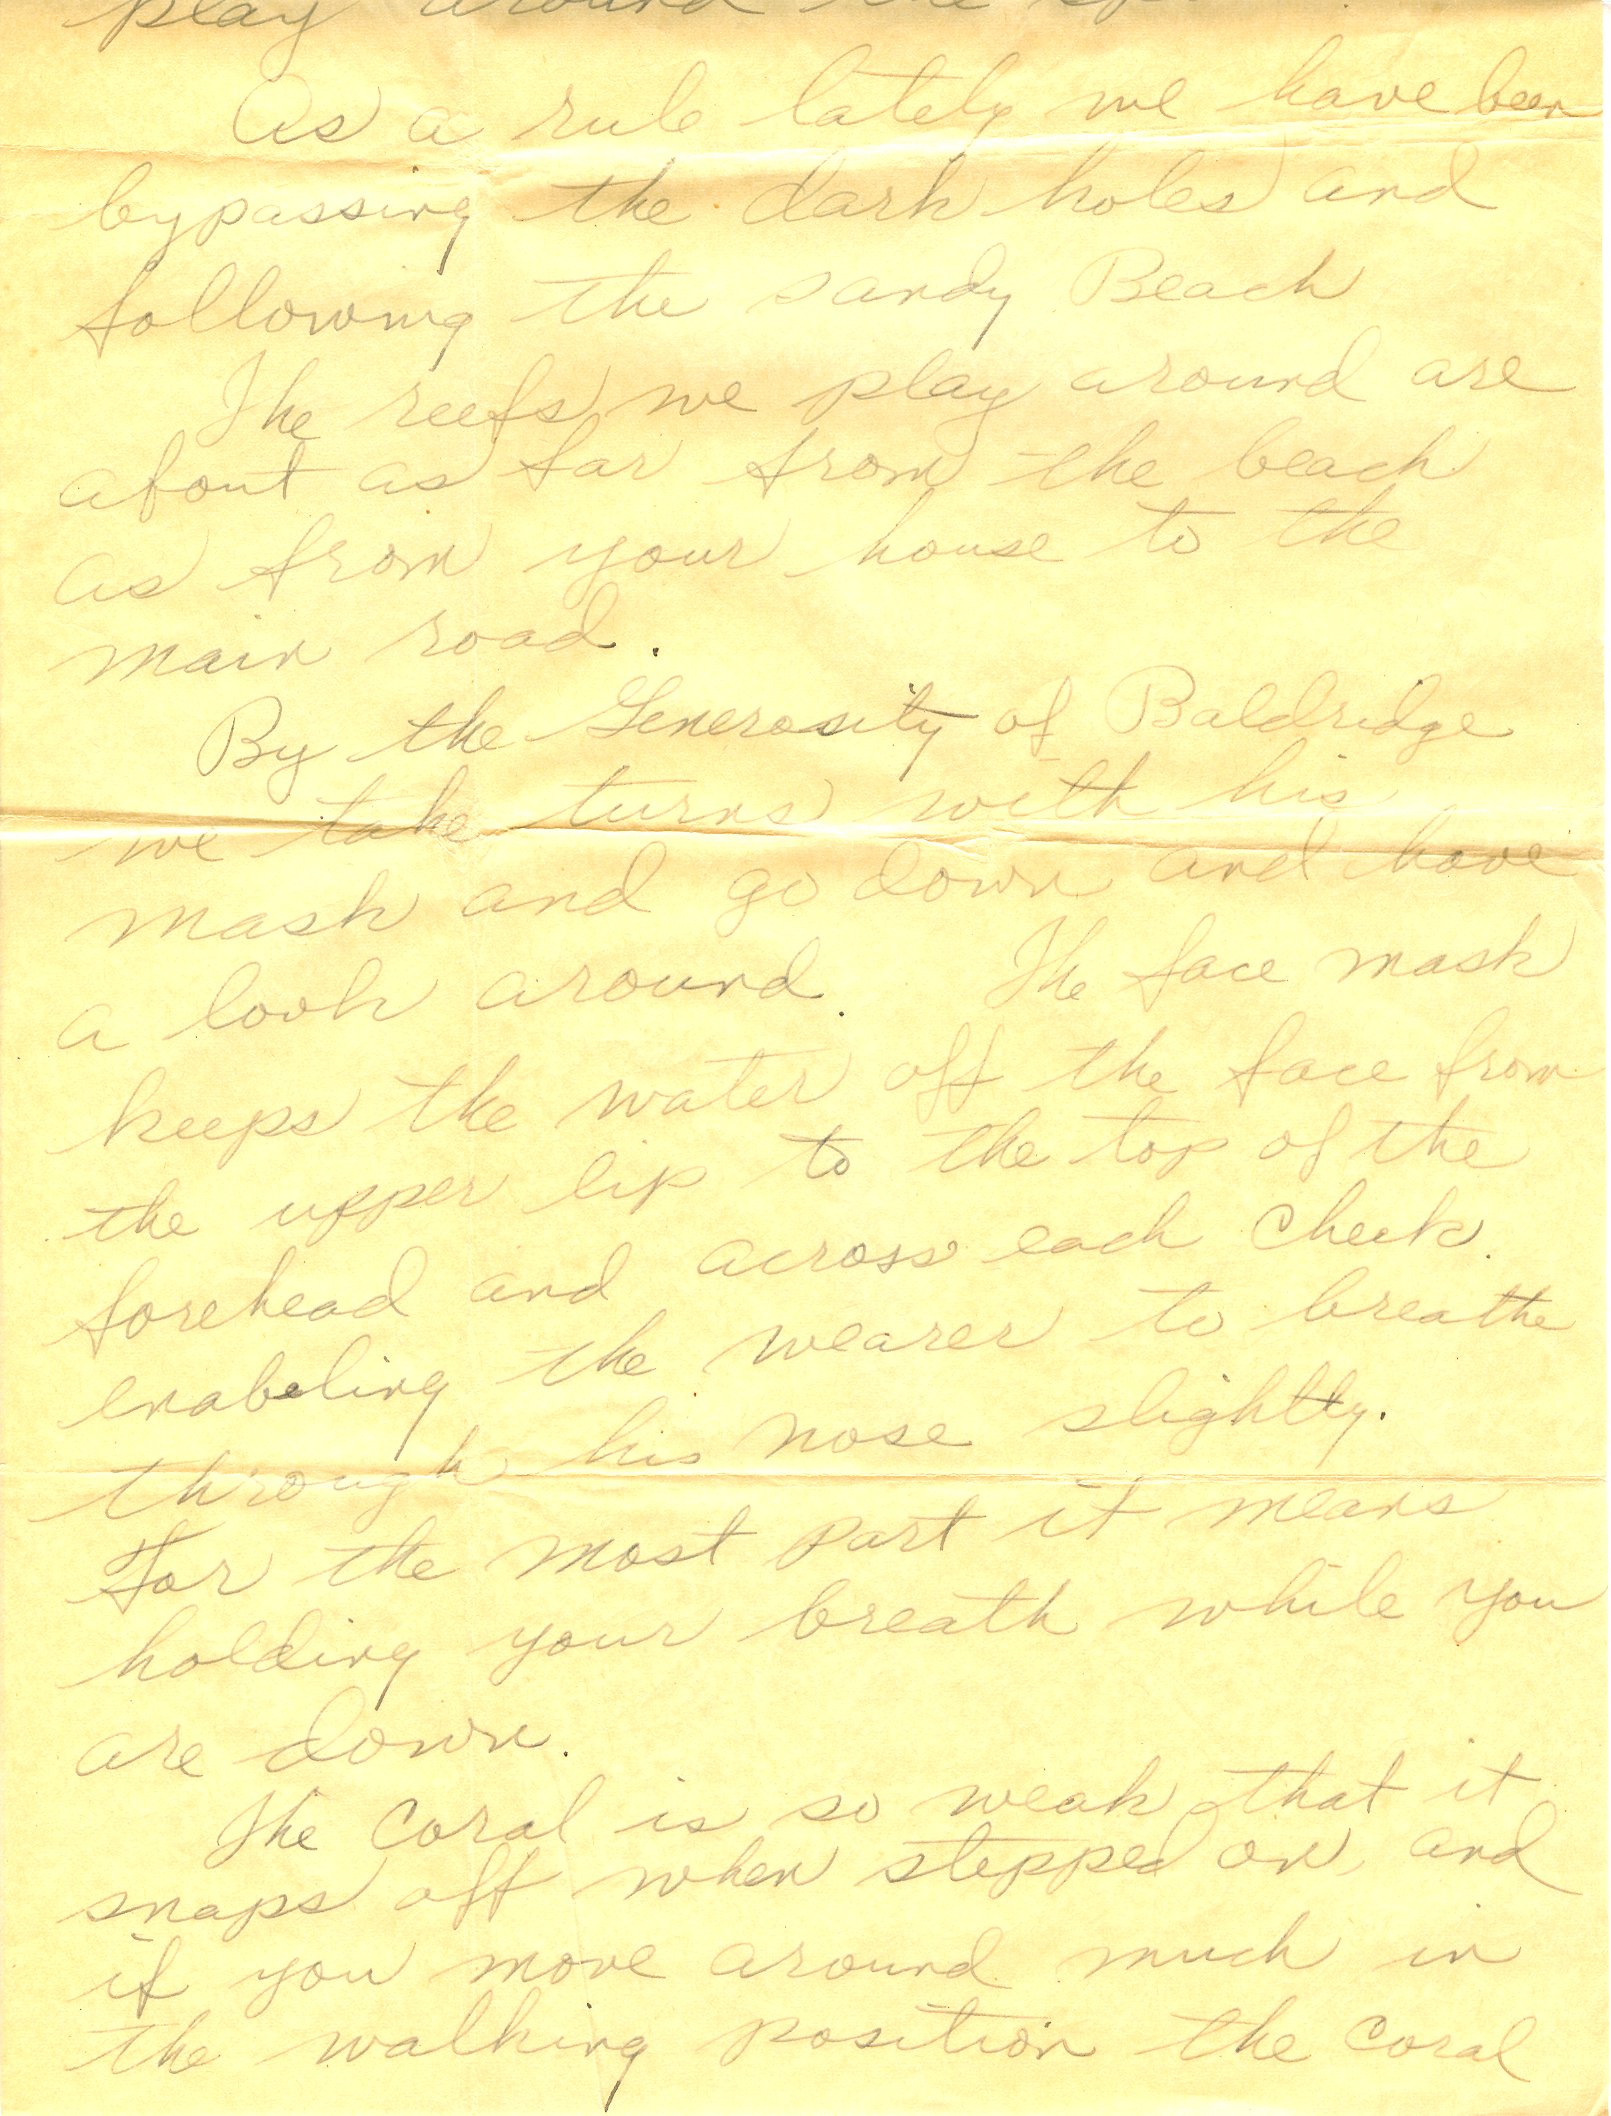 play around the
As a rule lately we have been
bypassing the dark holes and
following the sandy Beach
The reefs we play around are
about as far from the beach
as from your house to the
main road.
By the Generosity of Baldridge
we take turns with his
mask and go down and have
a look around. The face mask
keeps the water off the face from
the upper lip to the top of the
forehead and across each cheek.
enabeling the wearer to breathe
through his nose slightly.
For the most part it means
holding your breath while you
are down.
The coral is so weak that it
snaps off when stepped on, and
if you move around much in
the walking position the coral